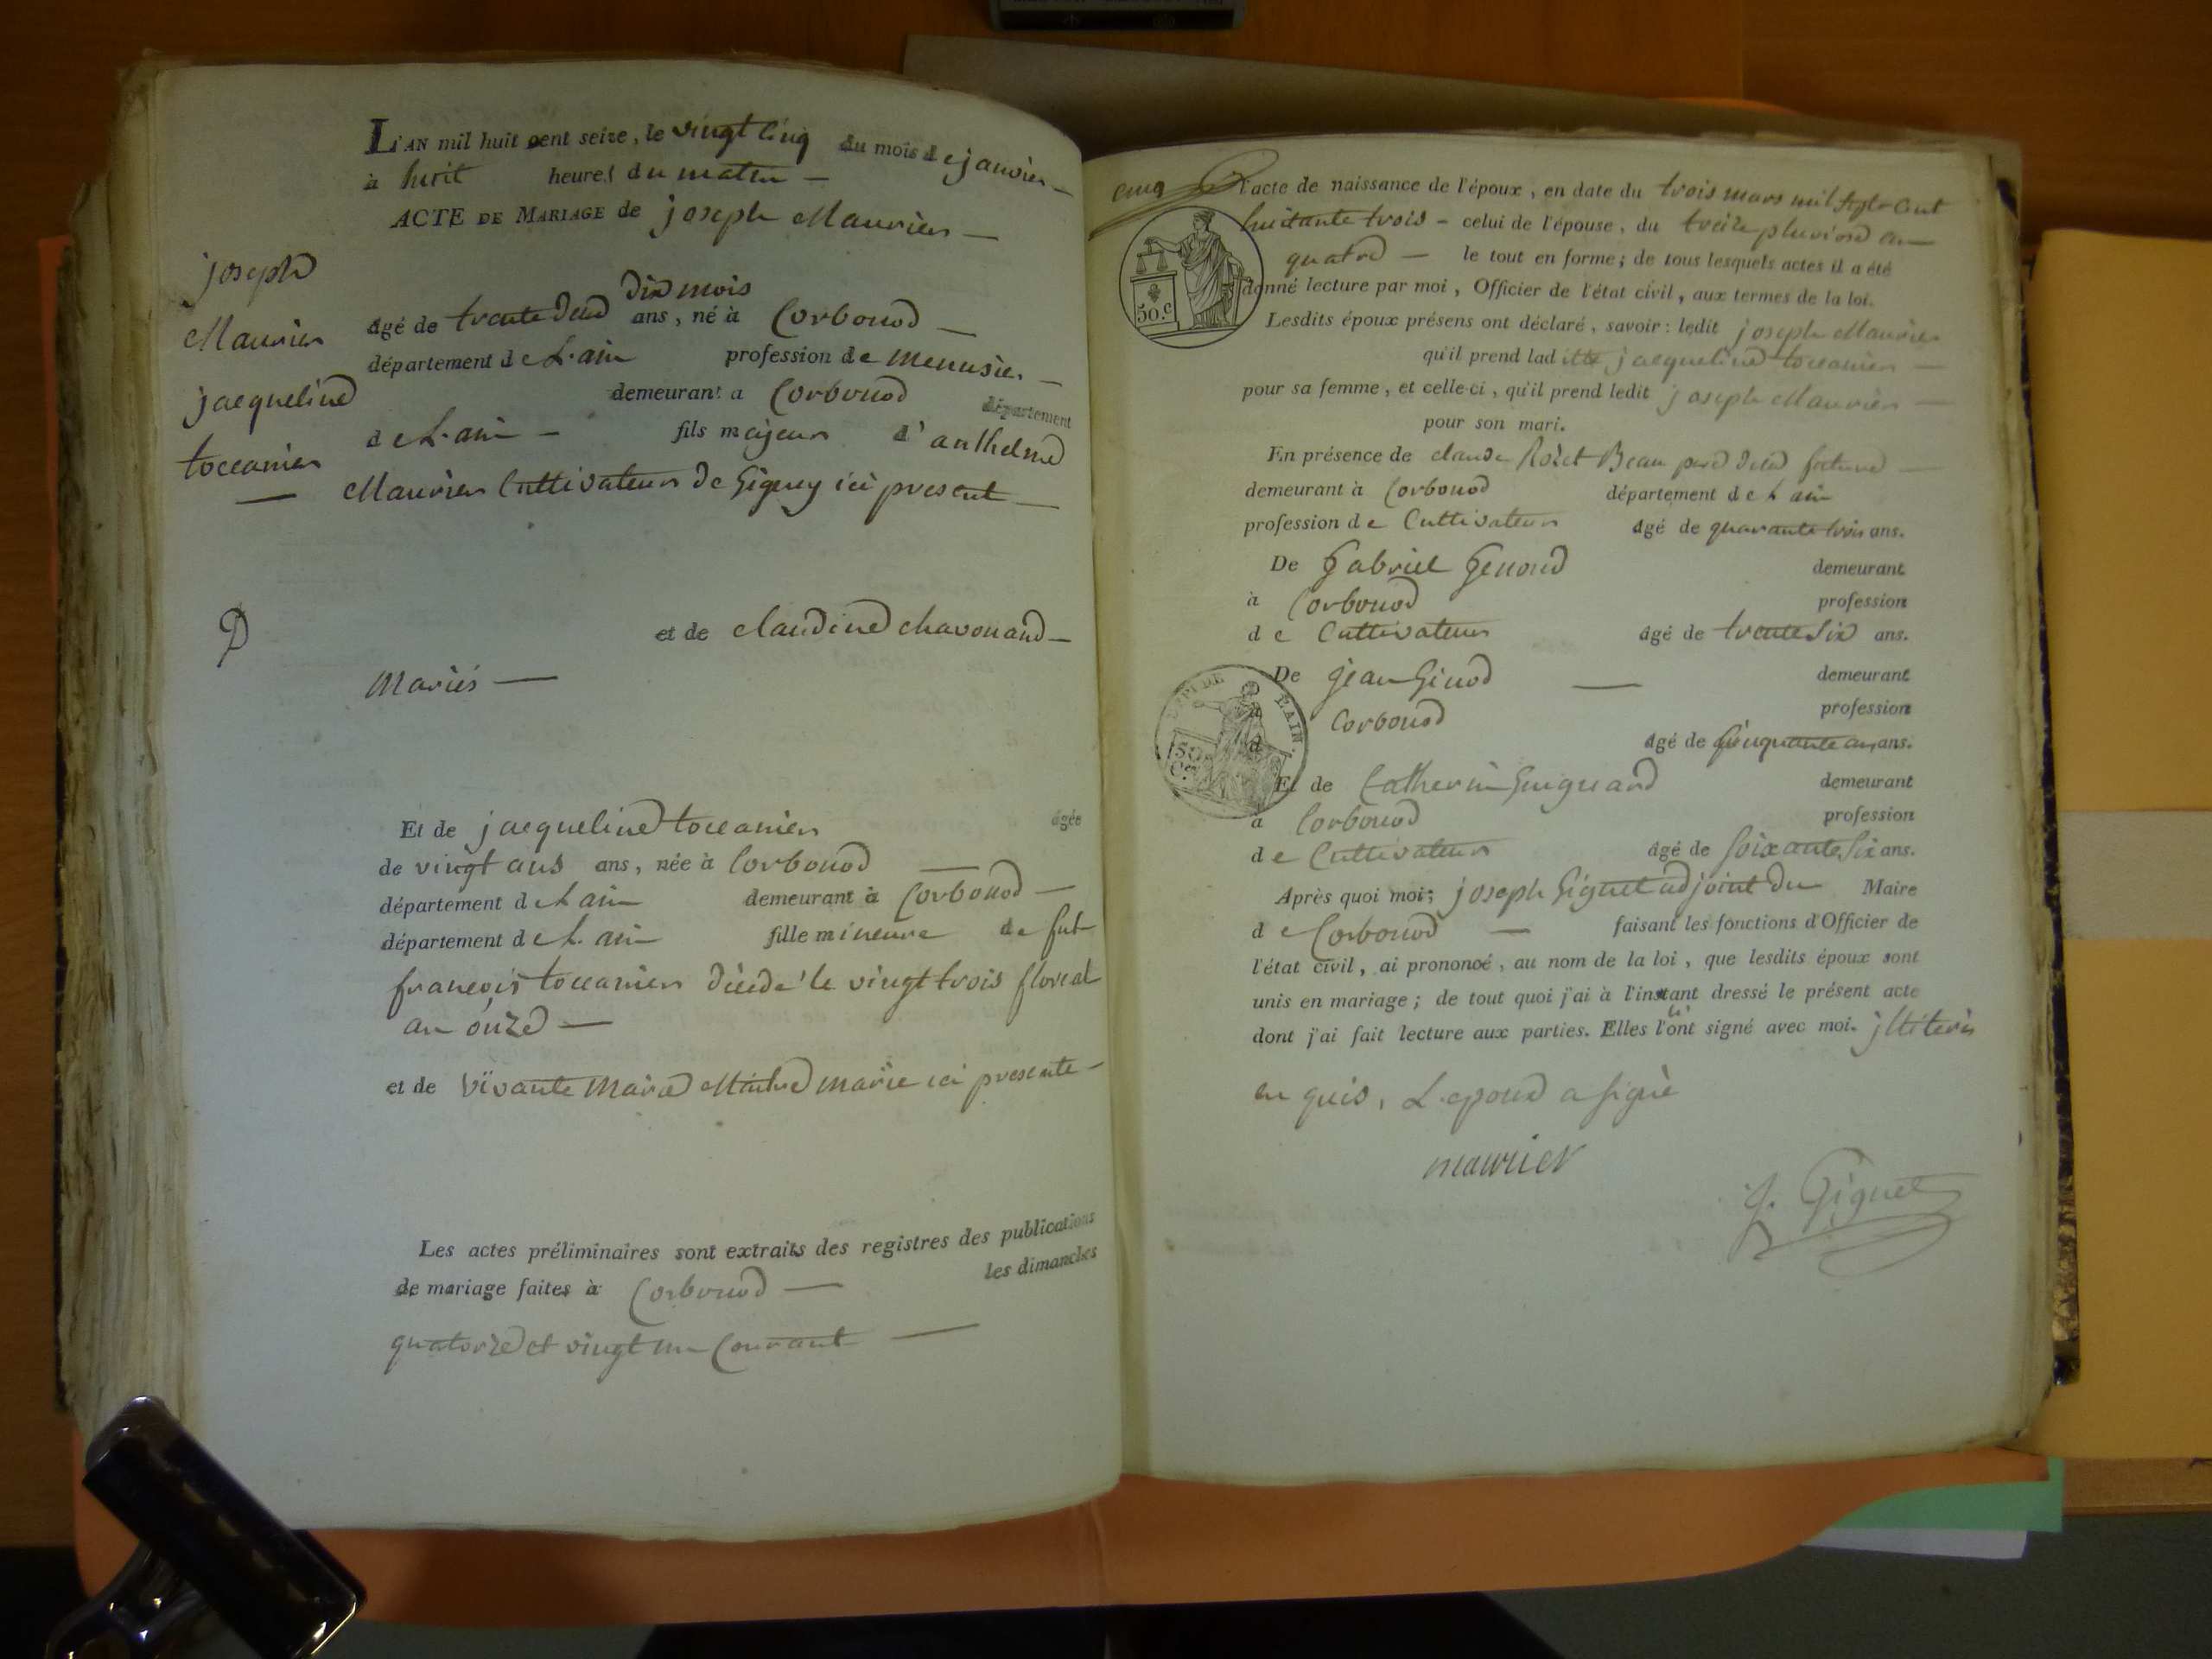 L'AN mil huit cent seize, le vingt Cinq du mois de janvier
à huit heures du matin
ACTE DE MARIAGE de joseph Maurier
joseph
Maurier
jacqueline
toccanier
dix mois
âgé de trente deux ans, né à Corbonod
département de L'ain profession de menusier
demeurant a Corbonod département
de L'ain fils majeur d'anthelme
Maurier Cultivateur de Gignez ici present
et de claudine chavouand
Mariés
Et de jacqueline toccanier âgée
de vingt ans ans, née à Corbonod
département de L ain demeurant à Corbonod
département de L. ain fille mineure de fut
françois toccanier décédé le vingt trois floreal
an onze
et de vivante marie marie ici presente
Les actes préliminaires sont extraits des registres des publications
de mariage faites à Corbonod les dimanches
quatorze et vingt un Courant
cinq
l'acte de naissance de l'époux, en date du trois mars mil sept cent
huitante trois - celui de l'épouse, du treize pluviose an
quatre le tout en forme; de tous lesquels actes il a été
donné lecture par moi, Officier de l'état civil, aux termes de la loi.
50.c
Lesdits époux présens ont déclaré, savoir: ledit joseph Maurier
qu'il prend laditte jacqueline toccanier
pour sa femme, et celle-ci, qu'il prend ledit joseph Maurier
pour son mari.
En présence de claude Rozet Beau pere de la future
demeurant à Corbonod département de L ain
profession de Cultivateur âgé de quarante trois ans.
De Gabriel Genoud demeurant
à Corbonod profession
de Cultivateur âgé de trente Six ans.
De jean Ginod demeurant
à Corbonod profession
d âgé de Cinquante ans.
DEPT DE L'AIN.
50 Ces
Et de Catherin Guignard demeurant
à Corbonod profession
de Cultivateur âgé de Soixante Six ans.
Après quoi moi; joseph Giguet adjoint du Maire
de Corbonod faisant les fonctions d'Officier de
l'état civil, ai prononcé, au nom de la loi, que lesdits époux sont
unis en mariage; de tout quoi j'ai à l'instant dressé le présent acte
dont j'ai fait lecture aux parties. Elles l'ont signé avec moi. jlliteris
en quis, L'epoux a signé
maurier
J. Giguet